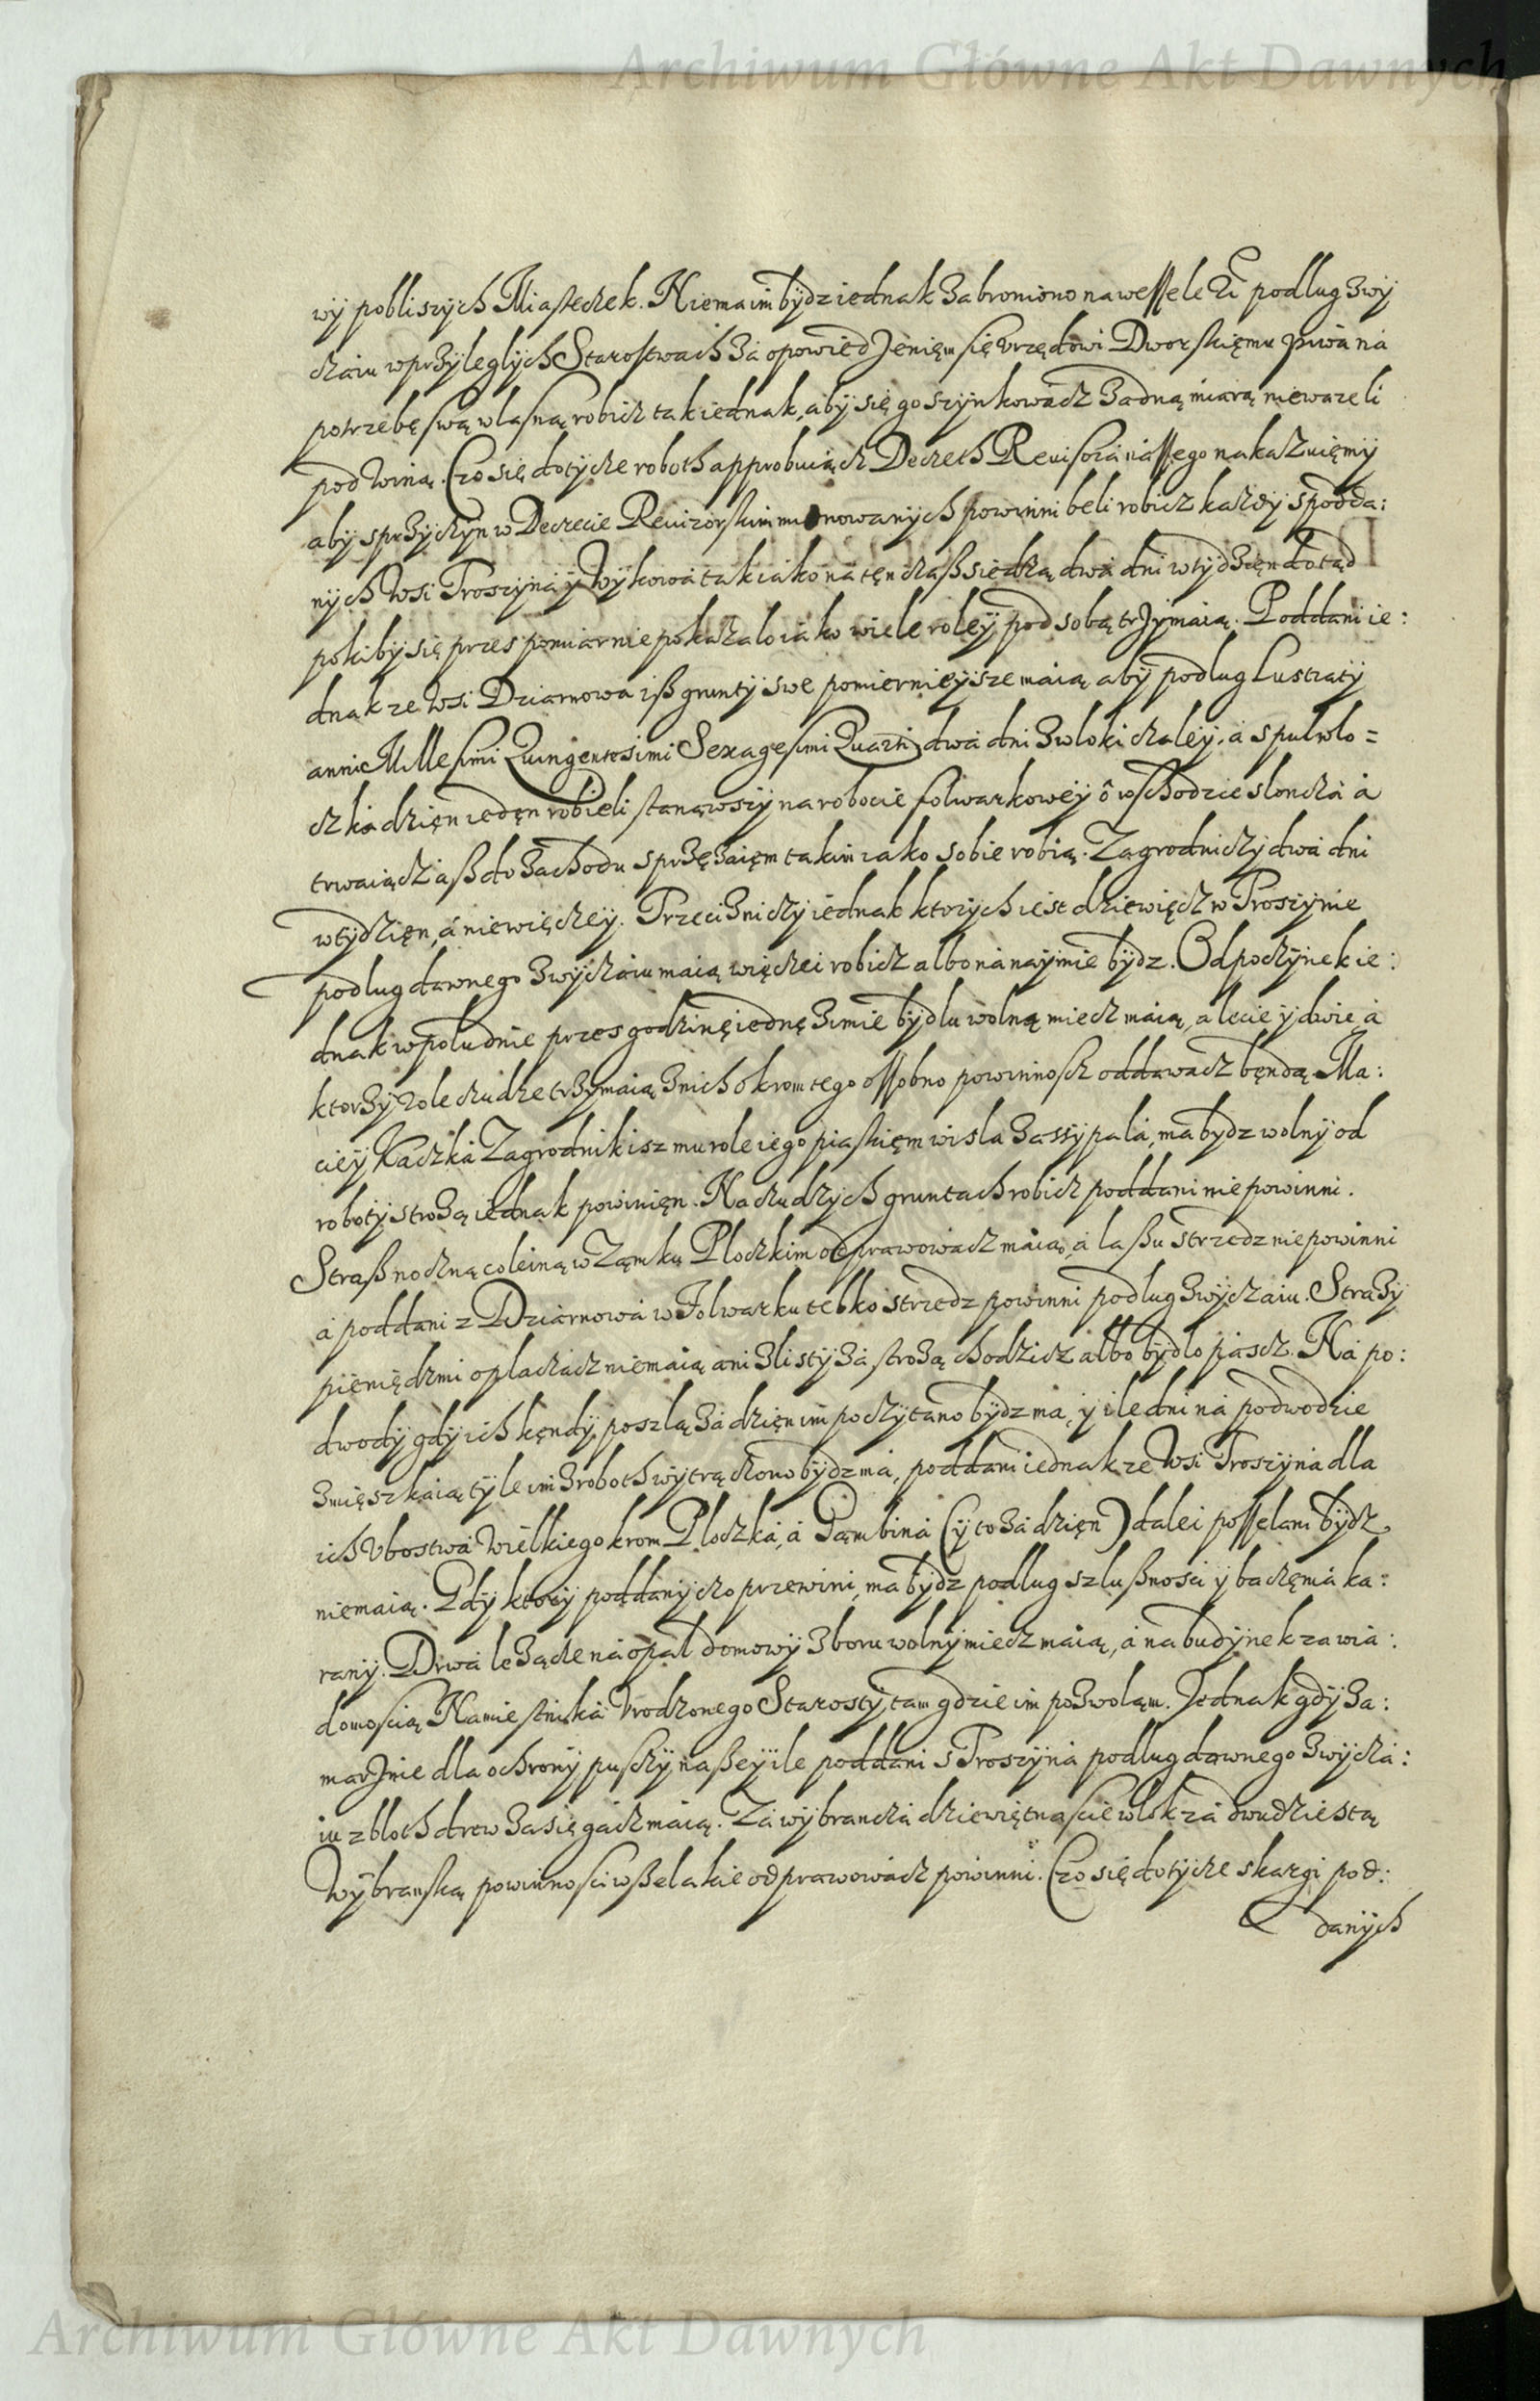 Archiwum Główne Akt Dawnych
wy pobliszych Miasteczek. Niema im bydz iednak zabroniono na wessele podlug zwy
czaiu w przyleglych Starostwach za opowiedzenięm się vrzędowi Dworskięmu piwa na
potrzebę swą wlasną robicz tak iednak, aby się go szynkowacz żadną miarą nieważeli
pod winą. Czo się dotycze roboth approbuiącz Decreth Revisora nassego nakazuięmy
aby z przyczyn w Decrecie Revizorskim mionowanych powinni beli robicz każdy z podda:
nych wsi Troszyna y Wykowa tak iako na tęn czaß siedzą dwa dni w tydzięn dotąd
pokiby się przes pomiar nie pokazalo iako wiele roley pod sobą trzymaią. Poddani ie:
dnak ze wsi Dziarnowa iß grunty swe pomiernieysze maią aby podlug Lustraty
anni Millesimi Quingentesimi Sexagesimi Quarti dwa dni z wloki czaley, a z pulwlo=
czka dzięn iedęn robieli stanąwszy na robocie folwarkowey o wschodzie sloncza a
trwaiącz aß do zachodu sprzężaięm takim iako sobie robią. Zagrodniczy dwa dni
w tydzięn, a niewięczey. Trzecizniczy iednak ktorych iest dziewięcz w Troszynie
podlug dawnego zwyczaiu maią więczei robicz albo na naymie bydz. Odpoczynek ie:
dnak w poludnie przes godzinę iednę zimie bydlu wolną miecz maią, a lecie y dwie, a
ktorzy role cżudze trzymaią z nich okrom tego ossobno powinnoscz oddawacz będą. Ma:
ciey Kaczka Zagrodnik isz mu role iego piaskięm wisla zassypala, ma bydz wolny od
roboty strożą iednak powinięn. Na czudzych gruntach robicz poddani nie powinni.
Straß noczną coleiną w Zęmku Ploczkim odprawowacz maią, a laßu strzedz nie powinni
a poddani z Dziarnowa w Folwarku telko strzedz powinni podlug zwyczaiu. Straży
pieniędzmi oplaczacz niemaią ani z listy za strożą chodzicz albo bydlo pascz. Na po:
dwody gdy ich kędy poszlą za dzięn im poczytano bydz ma, y ile dni na podwodzie
zmięszkaią tyle im z roboth wytrączono bydz ma, poddani iednak ze wsi Troszyna dla
ich vbostwa wielkiego krom Ploczka, a Gąmbina (y to za dzięn) dalei posselani bydz
niemaią. Gdy ktory poddany czo przewini, ma bydz podlug szlußnosci y baczęnia ka:
rany. Drwa leżącze na opal domowy z boru wolny miecz maią, a na budynek za wia:
domoscią Namiestnika vrodzonego Starosty tam gdzie im pozwolą. Jednak gdy za:
marznie dla ochrony pusczy naßey ile poddani s Troszyna podlug dawnego zwycza:
iu z bloth drew zasięgacz maią. Za wybrancza dziewiętnascie wlok za dwudziestą
Wybranską powinnosci wßelakie odprawowacz powinni. Czo się dotycze skargi pod:
danych
Archiwum Główne Akt Dawnych